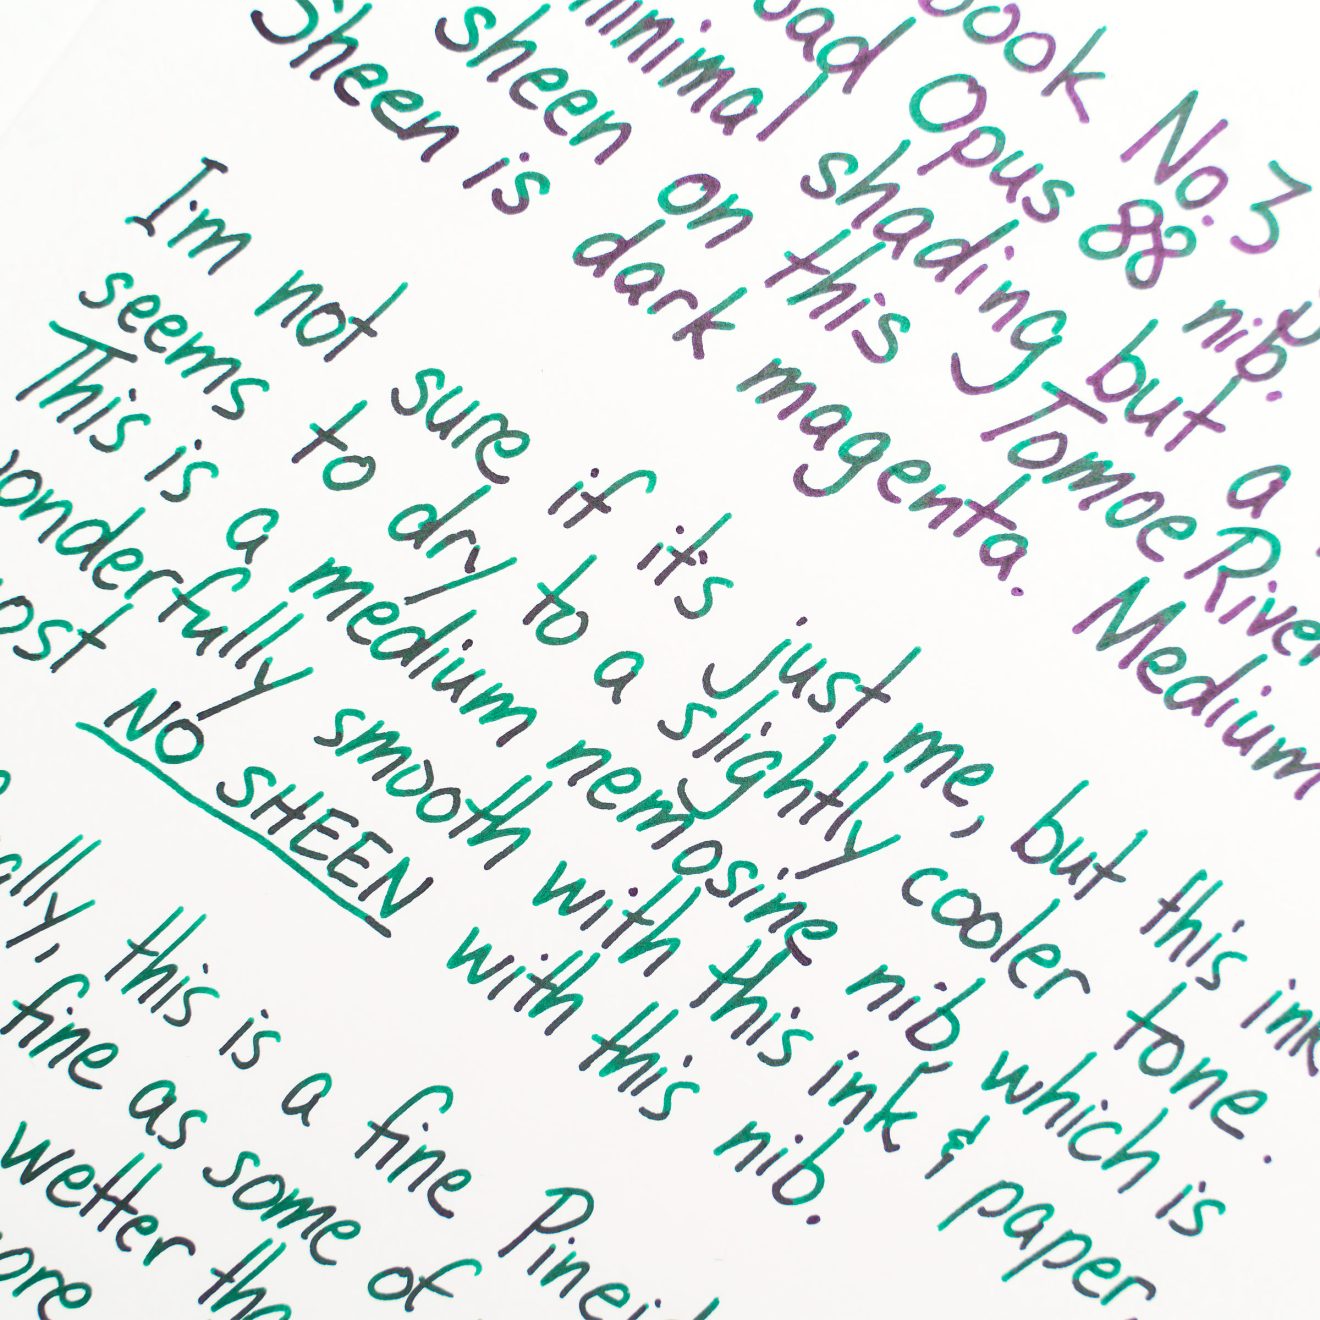 book No. 3
Opus 88 nib.
minimal shading but a
sheen on this Tomoe River
Sheen is dark magenta. Medium
I'm not sure if it's just me, but this ink
seems to dry to a slightly cooler tone.
This is a medium nemosine nib, which is
wonderfully smooth with this ink & paper,
NO SHEEN with this nib.
this is a fine
fine as some of
wetter